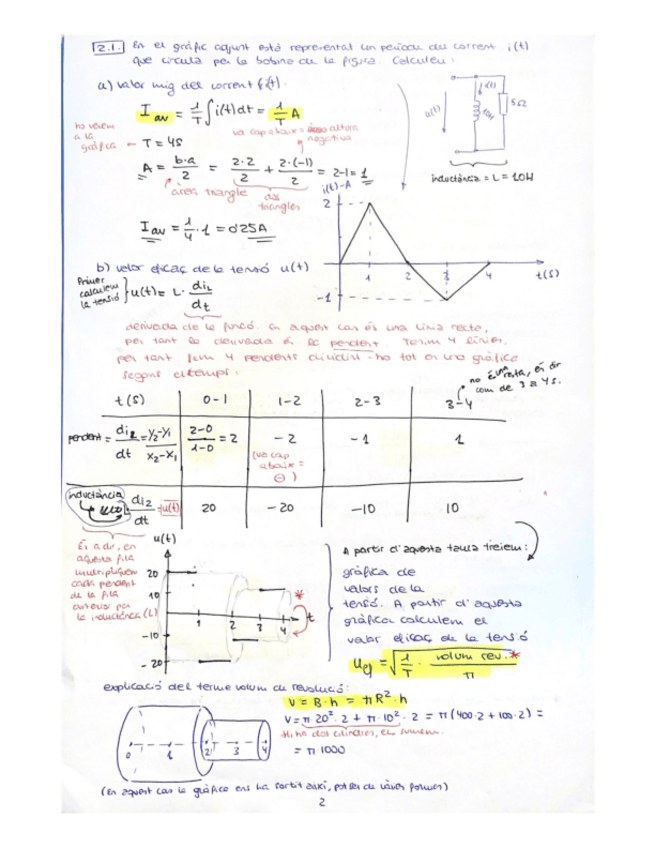 2.1. En el gràfic adjunt està representat un període del corrent i(t)
que circula per la bobina de la figura. Calculeu:
a) Valor mig del corrent i(t).
I av = 1/T ∫ i(t) dt = 1/T A
ho veiem
a la
gràfica ← T = 4s
va cap abaix = altura
negativa
A = b·a/2 = 2·2/2 + 2·(-1)/2 = 2-1 = 1
àrea triangle dos
triangles
I av = 1/4 · 1 = 0'25A
u(t)
i(t)
10H
5Ω
inductància = L = 10H
i(t)-A
2
-1
1 2 3 4 t(s)
b) valor eficaç de la tensió u(t)
Primer
calculem
la tensió } u(t) = L · diL/dt
derivada de la funció. En aquest cas és una línia recta,
per tant la derivada és la pendent. Tenim 4 línies,
per tant fem 4 pendents dividint-ho tot en una gràfica
segons el temps:
no és una resta, és dir
com de 3 a 4 s.
t(s) 0-1 1-2 2-3 3-4
pendent = diL/dt = y2-y1/x2-x1 2-0/1-0 = 2 -2 -1 1
(va cap
abaix =
⊖)
inductància
L diL/dt = u(t) 20 -20 -10 10
És a dir, en
aquesta fila
multipliquem
cada pendent
de la fila
anterior per
la inductància (L)
u(t)
20
10
-10
-20
1 2 3 4 t
*
A partir d'aquesta taula treiem:
gràfica de
valors de la
tensió. A partir d'aquesta
gràfica calculem el
valor eficaç de la tensió
Uef = √(1/T · volum rev.*/π)
explicació del terme volum de revolució:
V = B·h = πR²·h
V = π·20²·2 + π·10²·2 = π(400·2 + 100·2) =
hi ha dos cilindres, els sumem.
= π·1000
0 1 2 3 4
(En aquest cas la gràfica ens ha sortit així, pot ser de vàries formes)
2